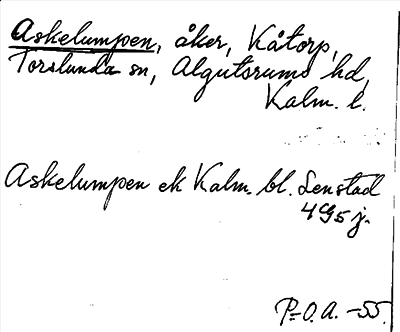 Askelumpen, åker, Kåtorp,
Torslunda sn, Algutsrums hd,
Kalm. l.
Askelumpen ek Kalm. bl. Lenstad
4 G5 j.
P-O.A. -55.